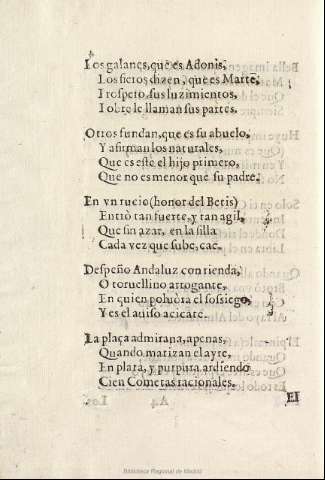 Los galanes, que es Adonis,
Los fieros dizen, que es Marte,
I respeto, sus luzimientos,
I obre le llaman sus partes.
Otros fundan, que es su abuelo,
Y afirman los naturales,
Que es este el hijo primero,
Que no es menor que su padre.
En vn rucio (honor del Betis)
Entrò tan fuerte, y tan agil,
Que sin azar, en la silla
Cada vez que sube, cae.
Despeño Andaluz con rienda,
O toruellino arrogante,
En quien poluora el sossiego,
Y es el auiso acicate.
La plaça admirana, apenas,
Quando matizan el ayre,
En plata, y purpura ardiendo
Cien Cometas racionales.
El
Biblioteca Regional de Madrid